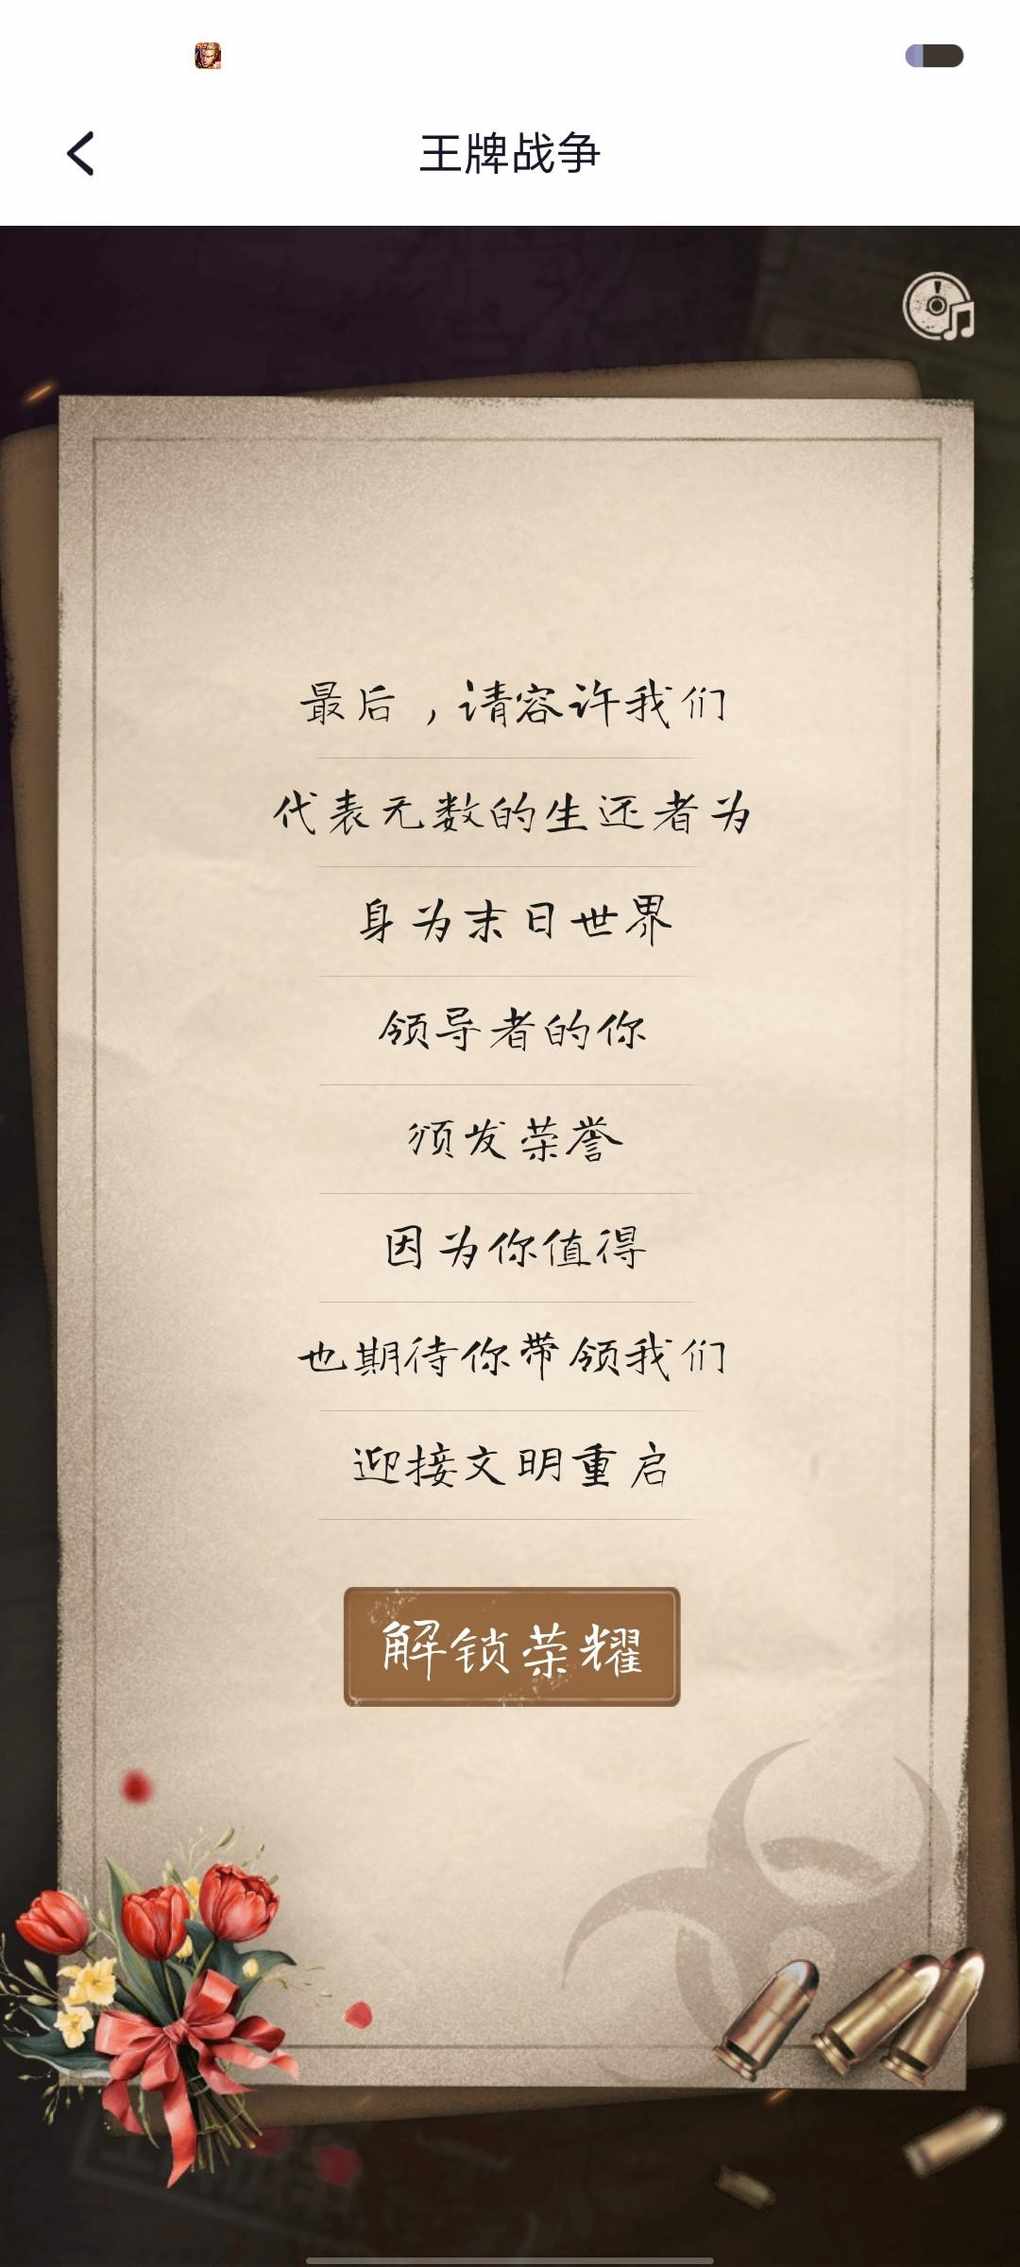 王牌战争
最后，请容许我们
代表无数的生还者为
身为末日世界
领导者的你
颁发荣誉
因为你值得
也期待你带领我们
迎接文明重启
解锁荣耀